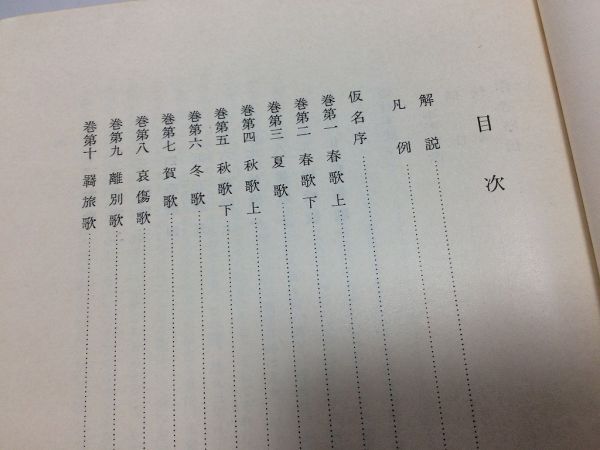 目次
解説
凡例
仮名序
巻第一 春歌上
巻第二 春歌下
巻第三 夏歌
巻第四 秋歌上
巻第五 秋歌下
巻第六 冬歌
巻第七 賀歌
巻第八 哀傷歌
巻第九 離別歌
巻第十 羇旅歌